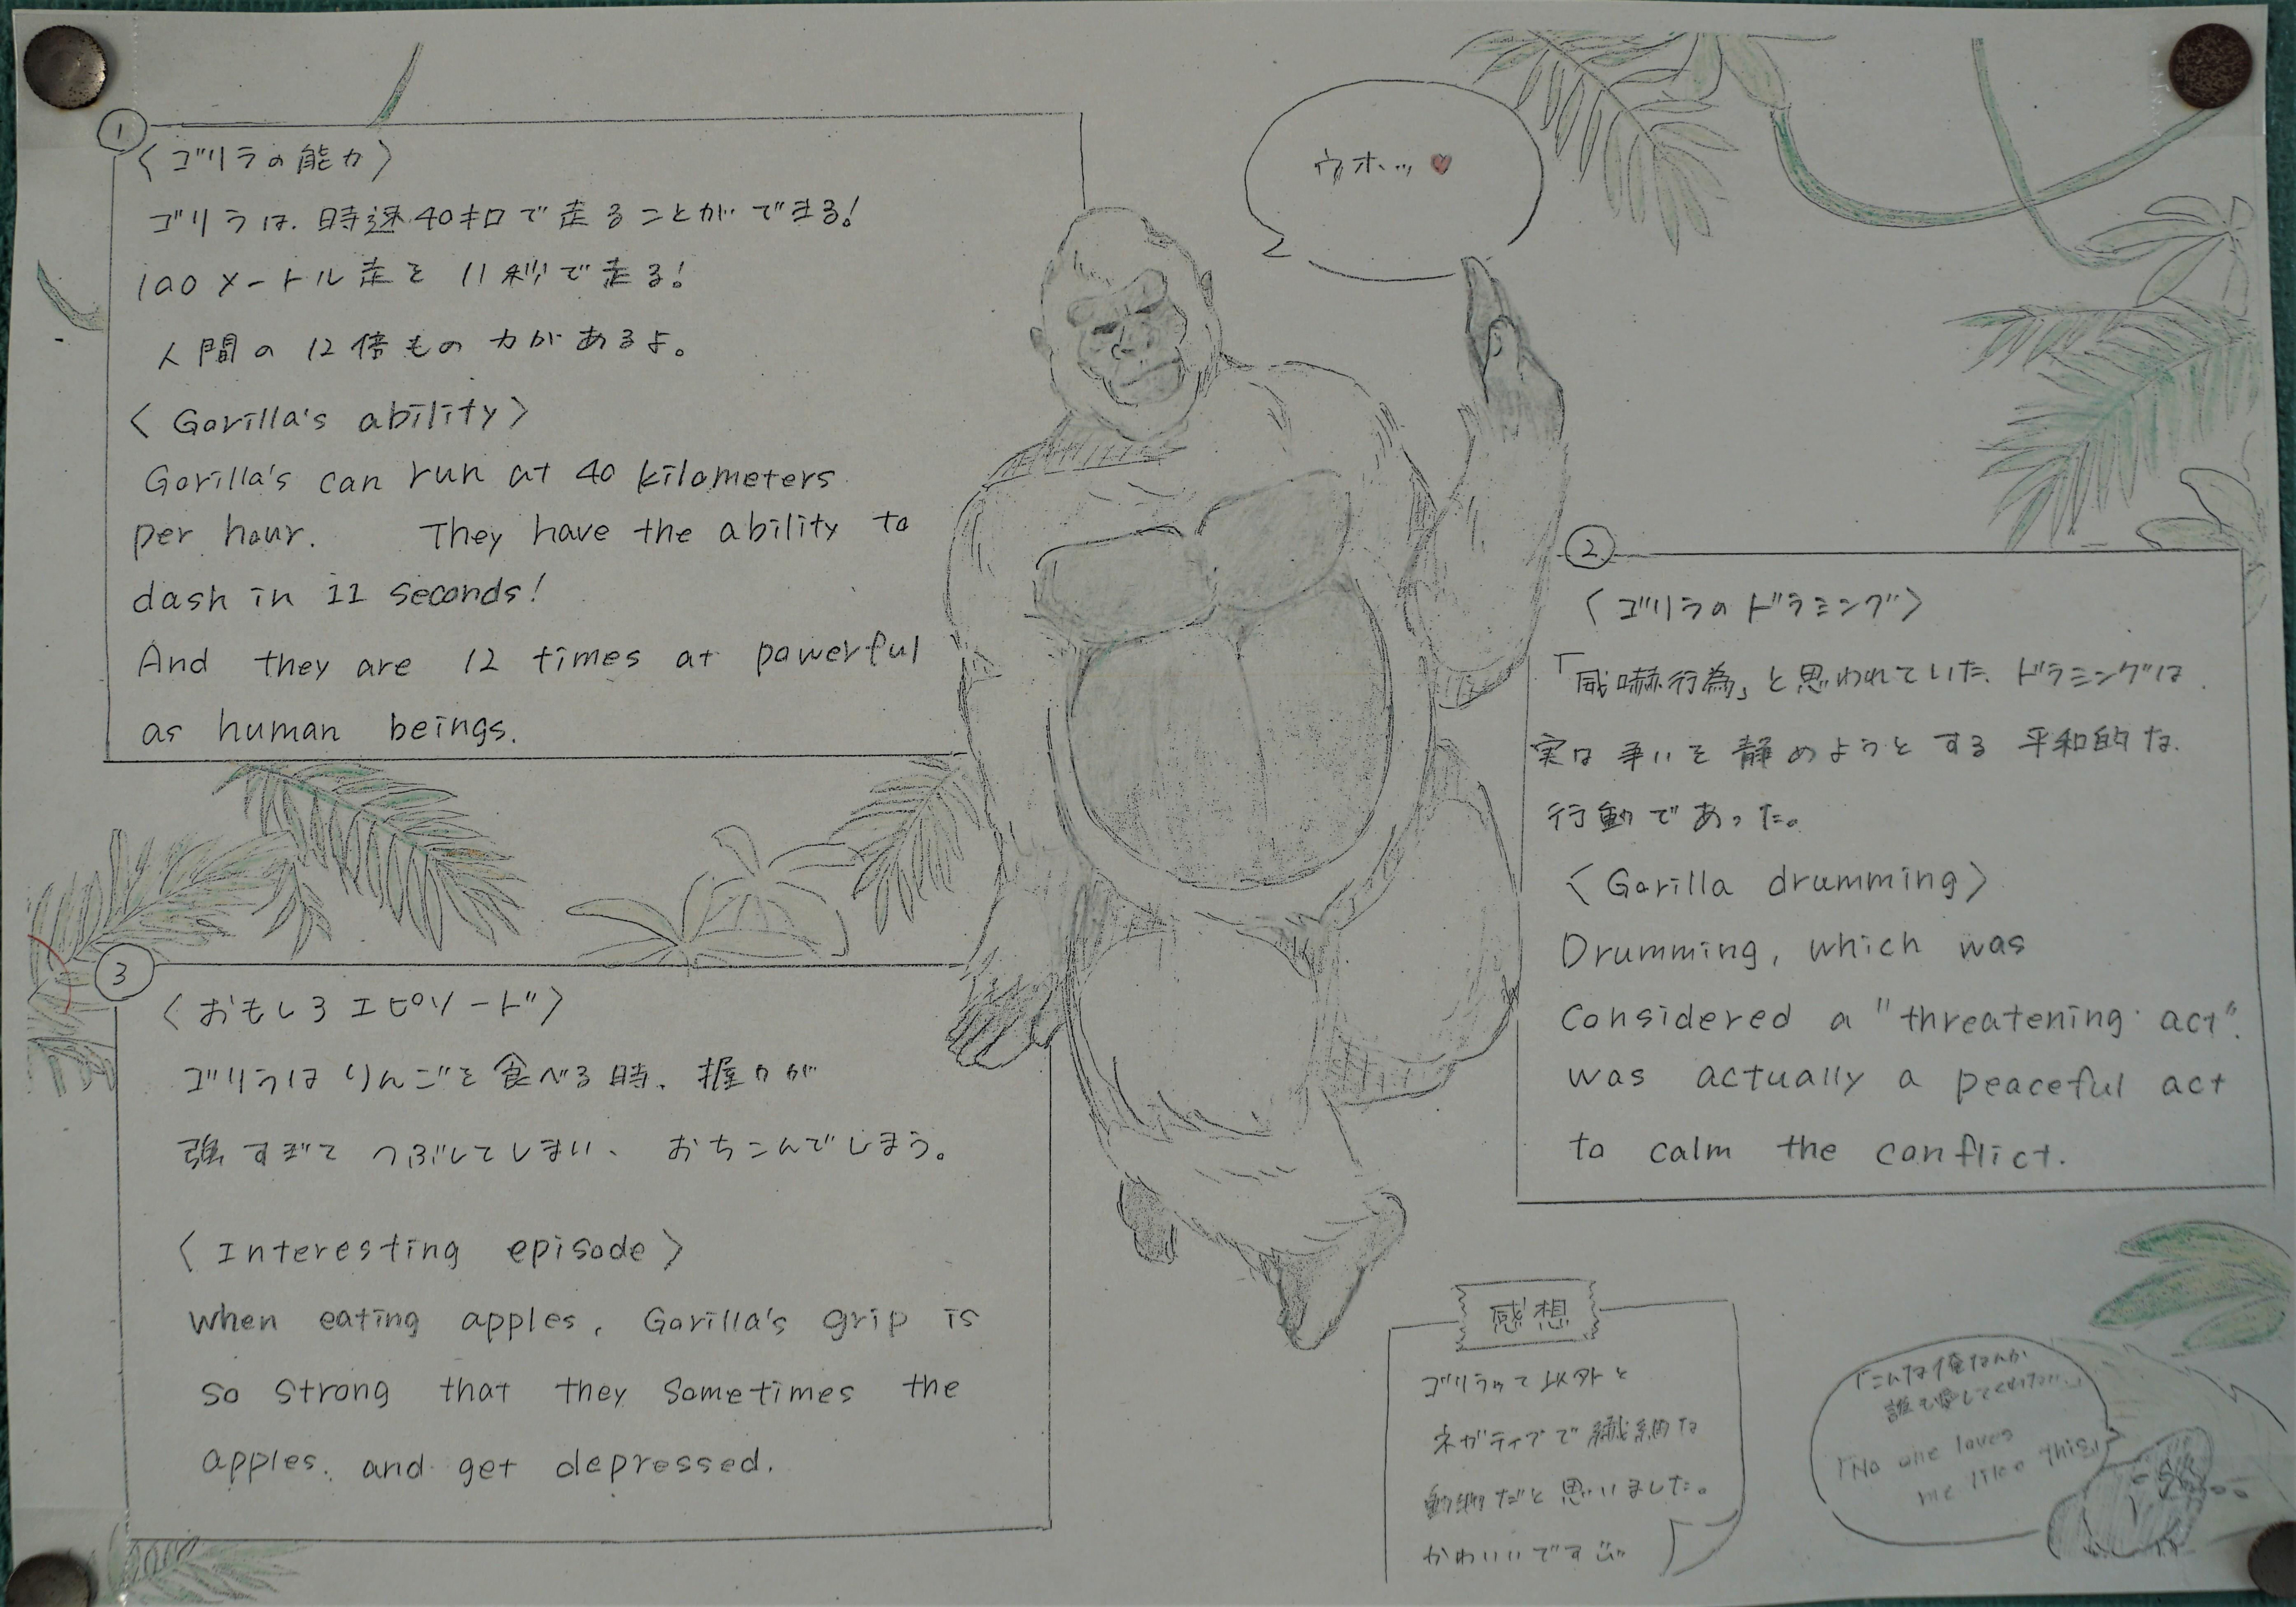 ①
〈ゴリラの能力〉
ゴリラは、時速40キロで走ることができる!
100メートル走を11秒で走る!
人間の12倍もの力があるよ。
〈Gorilla's ability〉
Gorilla's can run at 40 kilometers
per hour. They have the ability to
dash in 11 seconds!
And they are 12 times at powerful
as human beings.
ウホッ♥
②
〈ゴリラのドラミング〉
「威嚇行為」と思われていた、ドラミングは、
実は争いを静めようとする平和的な
行動であった。
〈Gorilla drumming〉
Drumming, which was
considered a "threatening act".
was actually a peaceful act
to calm the conflict.
③
〈おもしろエピソード〉
ゴリラはりんごを食べる時、握力が
強すぎてつぶしてしまい、おちこんでしまう。
〈Interesting episode〉
when eating apples, Gorilla's grip is
so strong that they sometimes the
apples, and get depressed.
感想
ゴリラって以外と
ネガティブで繊細な
動物だと思いました。
かわいいです
「こんな俺なんか
誰も愛してくれない…」
「No one loves
me like this」